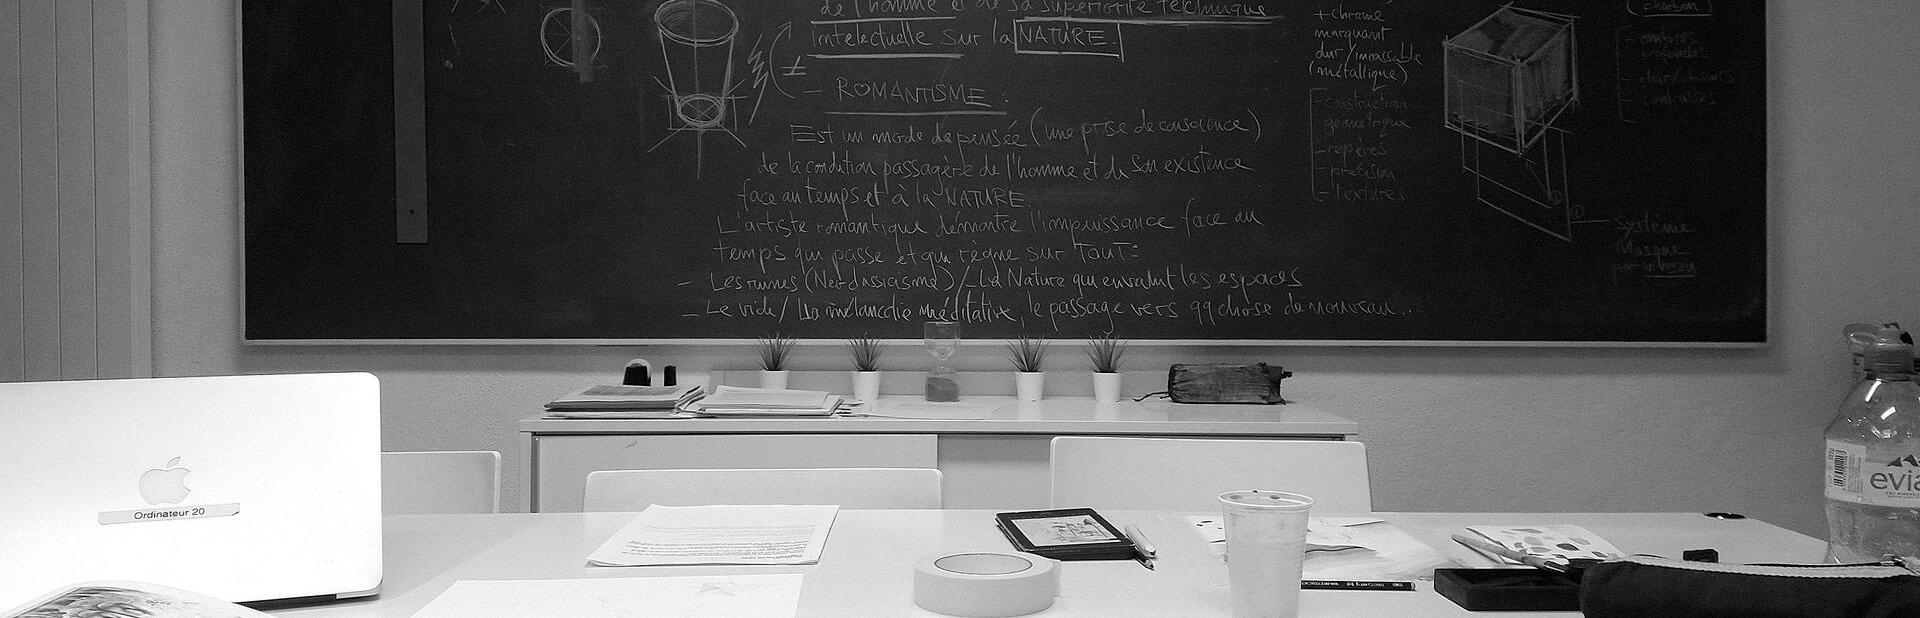 de l'homme et de sa supériorité technique
Intelectuelle sur la NATURE.
≠ - ROMANTISME :
Est un mode de pensée (une prise de conscience)
de la condition passagère de l'homme et de son existence
face au temps et à la NATURE.
L'artiste romantique démontre l'impuissance face au
temps qui passe et qui règne sur TOUT:
- Les ruines (Neo-classicisme) / - La Nature qui envahit les espaces
- Le vide / La mélancolie méditative, le passage vers qq chose de nouveau...
+ chromé
marquant
dur / incassable
(métallique)
- construction
géométrique
- repères
- précision
- textures
(charbon)
- ombres
- contrastes
Système
Masque
par niveau
Ordinateur 20
evia